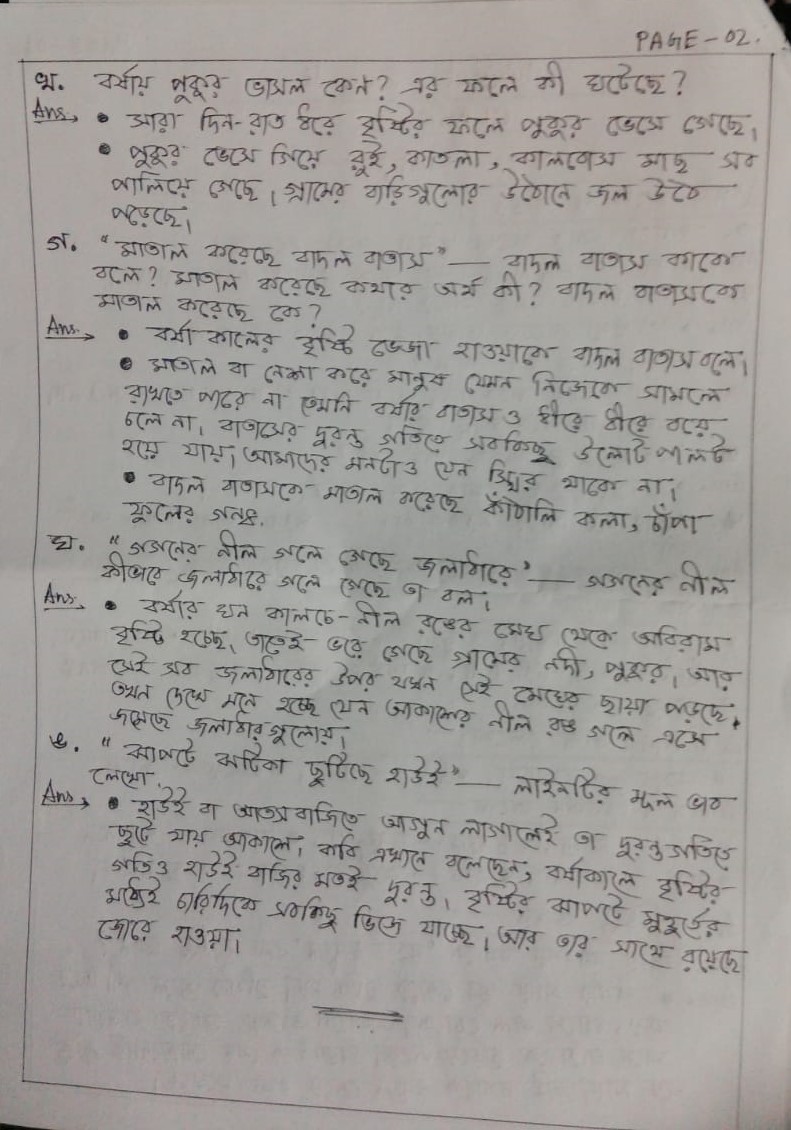 PAGE-02.
খ. বর্ষায় পুকুর ভাসল কেন? এর ফলে কী ঘটেছে?
Ans, • সারা দিন-রাত ধরে বৃষ্টির ফলে পুকুর ভেসে গেছে।
• পুকুর ভেসে গিয়ে রুই, কাতলা, কালবোস মাছ সব
পালিয়ে গেছে। গ্রামের বাড়িগুলোর উঠোনে জল উঠে
পড়েছে।
গ. "মাতাল করেছে বাদল বাতাস" — বাদল বাতাস কাকে
বলে? মাতাল করেছে কথার অর্থ কী? বাদল বাতাসকে
মাতাল করেছে কে?
Ans. • বর্ষা কালের বৃষ্টি ভেজা হাওয়াকে বাদল বাতাস বলে।
• মাতাল বা নেশা করে মানুষ যেমন নিজেকে সামলে
রাখতে পারে না তেমনি বর্ষার বাতাস ও ধীরে ধীরে বয়ে
চলে না। বাতাসের দুরন্ত গতিতে সবকিছু উলোট পালট
হয়ে যায়। আমাদের মনটাও যেন স্থির থাকে না।
• বাদল বাতাসকে মাতাল করেছে কাঁঠালি কলা, চাঁপা
ফুলের গন্ধ।
ঘ. "গগনের নীল গলে গেছে জলাধারে" — গগনের নীল
কীভাবে জলাধারে গলে গেছে তা বল।
Ans. • বর্ষার ঘন কালচে-নীল রঙের মেঘ থেকে অবিরাম
বৃষ্টি হচ্ছে, তাতেই ভরে গেছে গ্রামের নদী, পুকুর। আর
সেই সব জলাধারের উপর যখন সেই মেঘের ছায়া পড়ছে,
তখন দেখে মনে হচ্ছে যেন আকাশের নীল রঙ গলে এসে
জমেছে জলাধারগুলোয়।
ঙ. "ঝাপটে ঝটিকা ছুটিছে হাউই" — লাইনটির মূল ভাব
লেখো.
Ans, • হাউই বা আতসবাজিতে আগুন লাগালেই তা দুরন্ত গতিতে
ছুটে যায় আকাশে। কবি এখানে বলেছেন, বর্ষাকালে বৃষ্টির
গতিও হাউই বাজির মতই দুরন্ত। বৃষ্টির ঝাপটে মুহূর্তের
মধ্যেই চারিদিকে সবকিছু ভিজে যাচ্ছে। আর তার সাথে রয়েছে
জোরে হাওয়া।